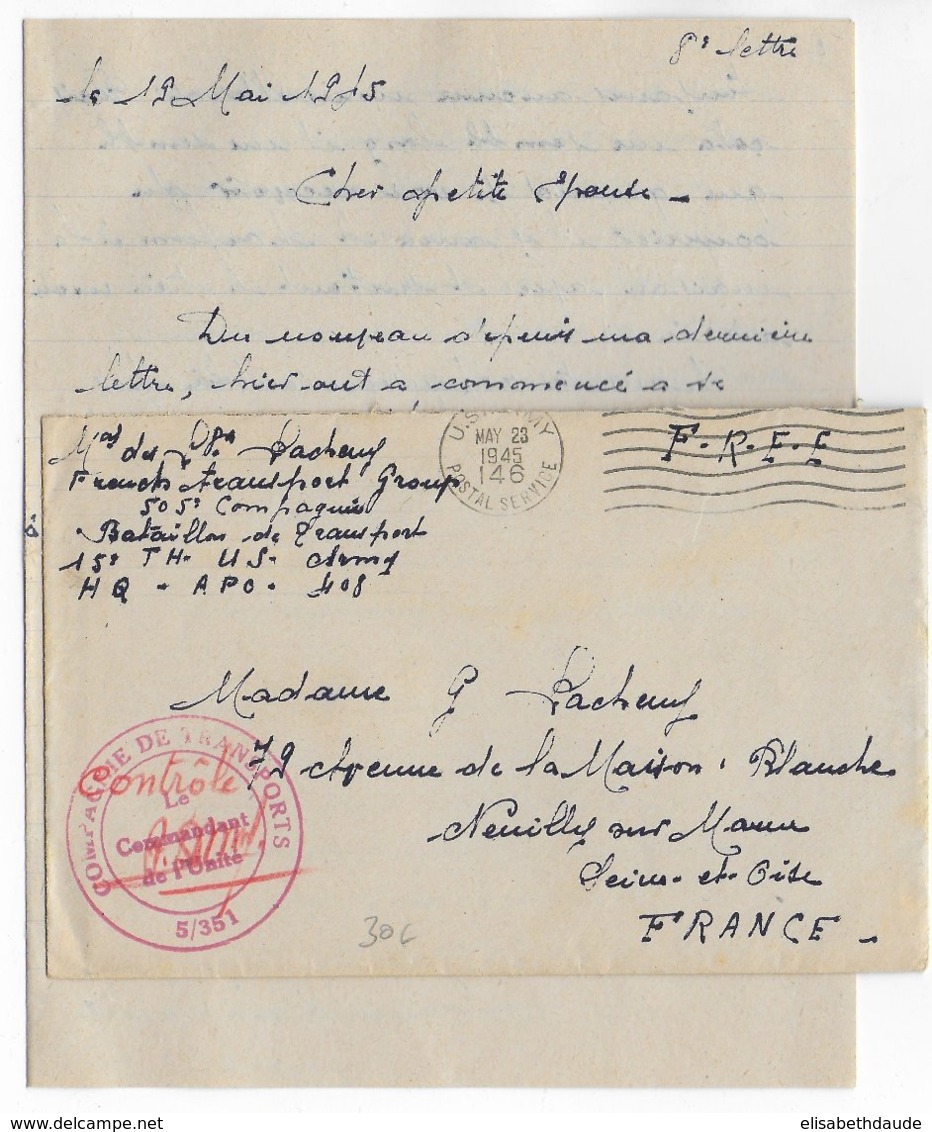 8e lettre
le 19 Mai 1945
Cher petite Epouse -
Du nouveau depuis ma dernière
lettre, hier ont a commencé a se
Mal des Lacheny
French transport Group
505e Compagnie
Bataillon de Transport
15e TH- US- Army
HQ - APO - 408
U.S. ARMY
MAY 23
1945
146
POSTAL SERVICE
F-R-E-E
Madame G Lacheny
72 Avenue de la Maison Blanche
Neuilly sur Marne
Seine-et-Oise
FRANCE -
COMPAGNIE DE TRANSPORTS
Contrôle
Le
Commandant
de l'Unité
5/351
30€
elisabethdaude